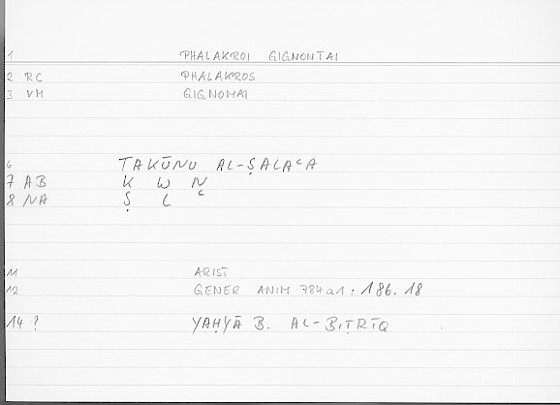 1 PHALAKROI GIGNONTAI
2 RC PHALAKROS
3 VM GIGNOMAI
6 TAKŪNU AL-ṢALAʿA
7 AB K W N
8 NA Ṣ L ʿ
11 ARIST
12 GENER ANIM 784a1 : 186.18
14 ? YAḤYĀ B. AL-BIṬRĪQ